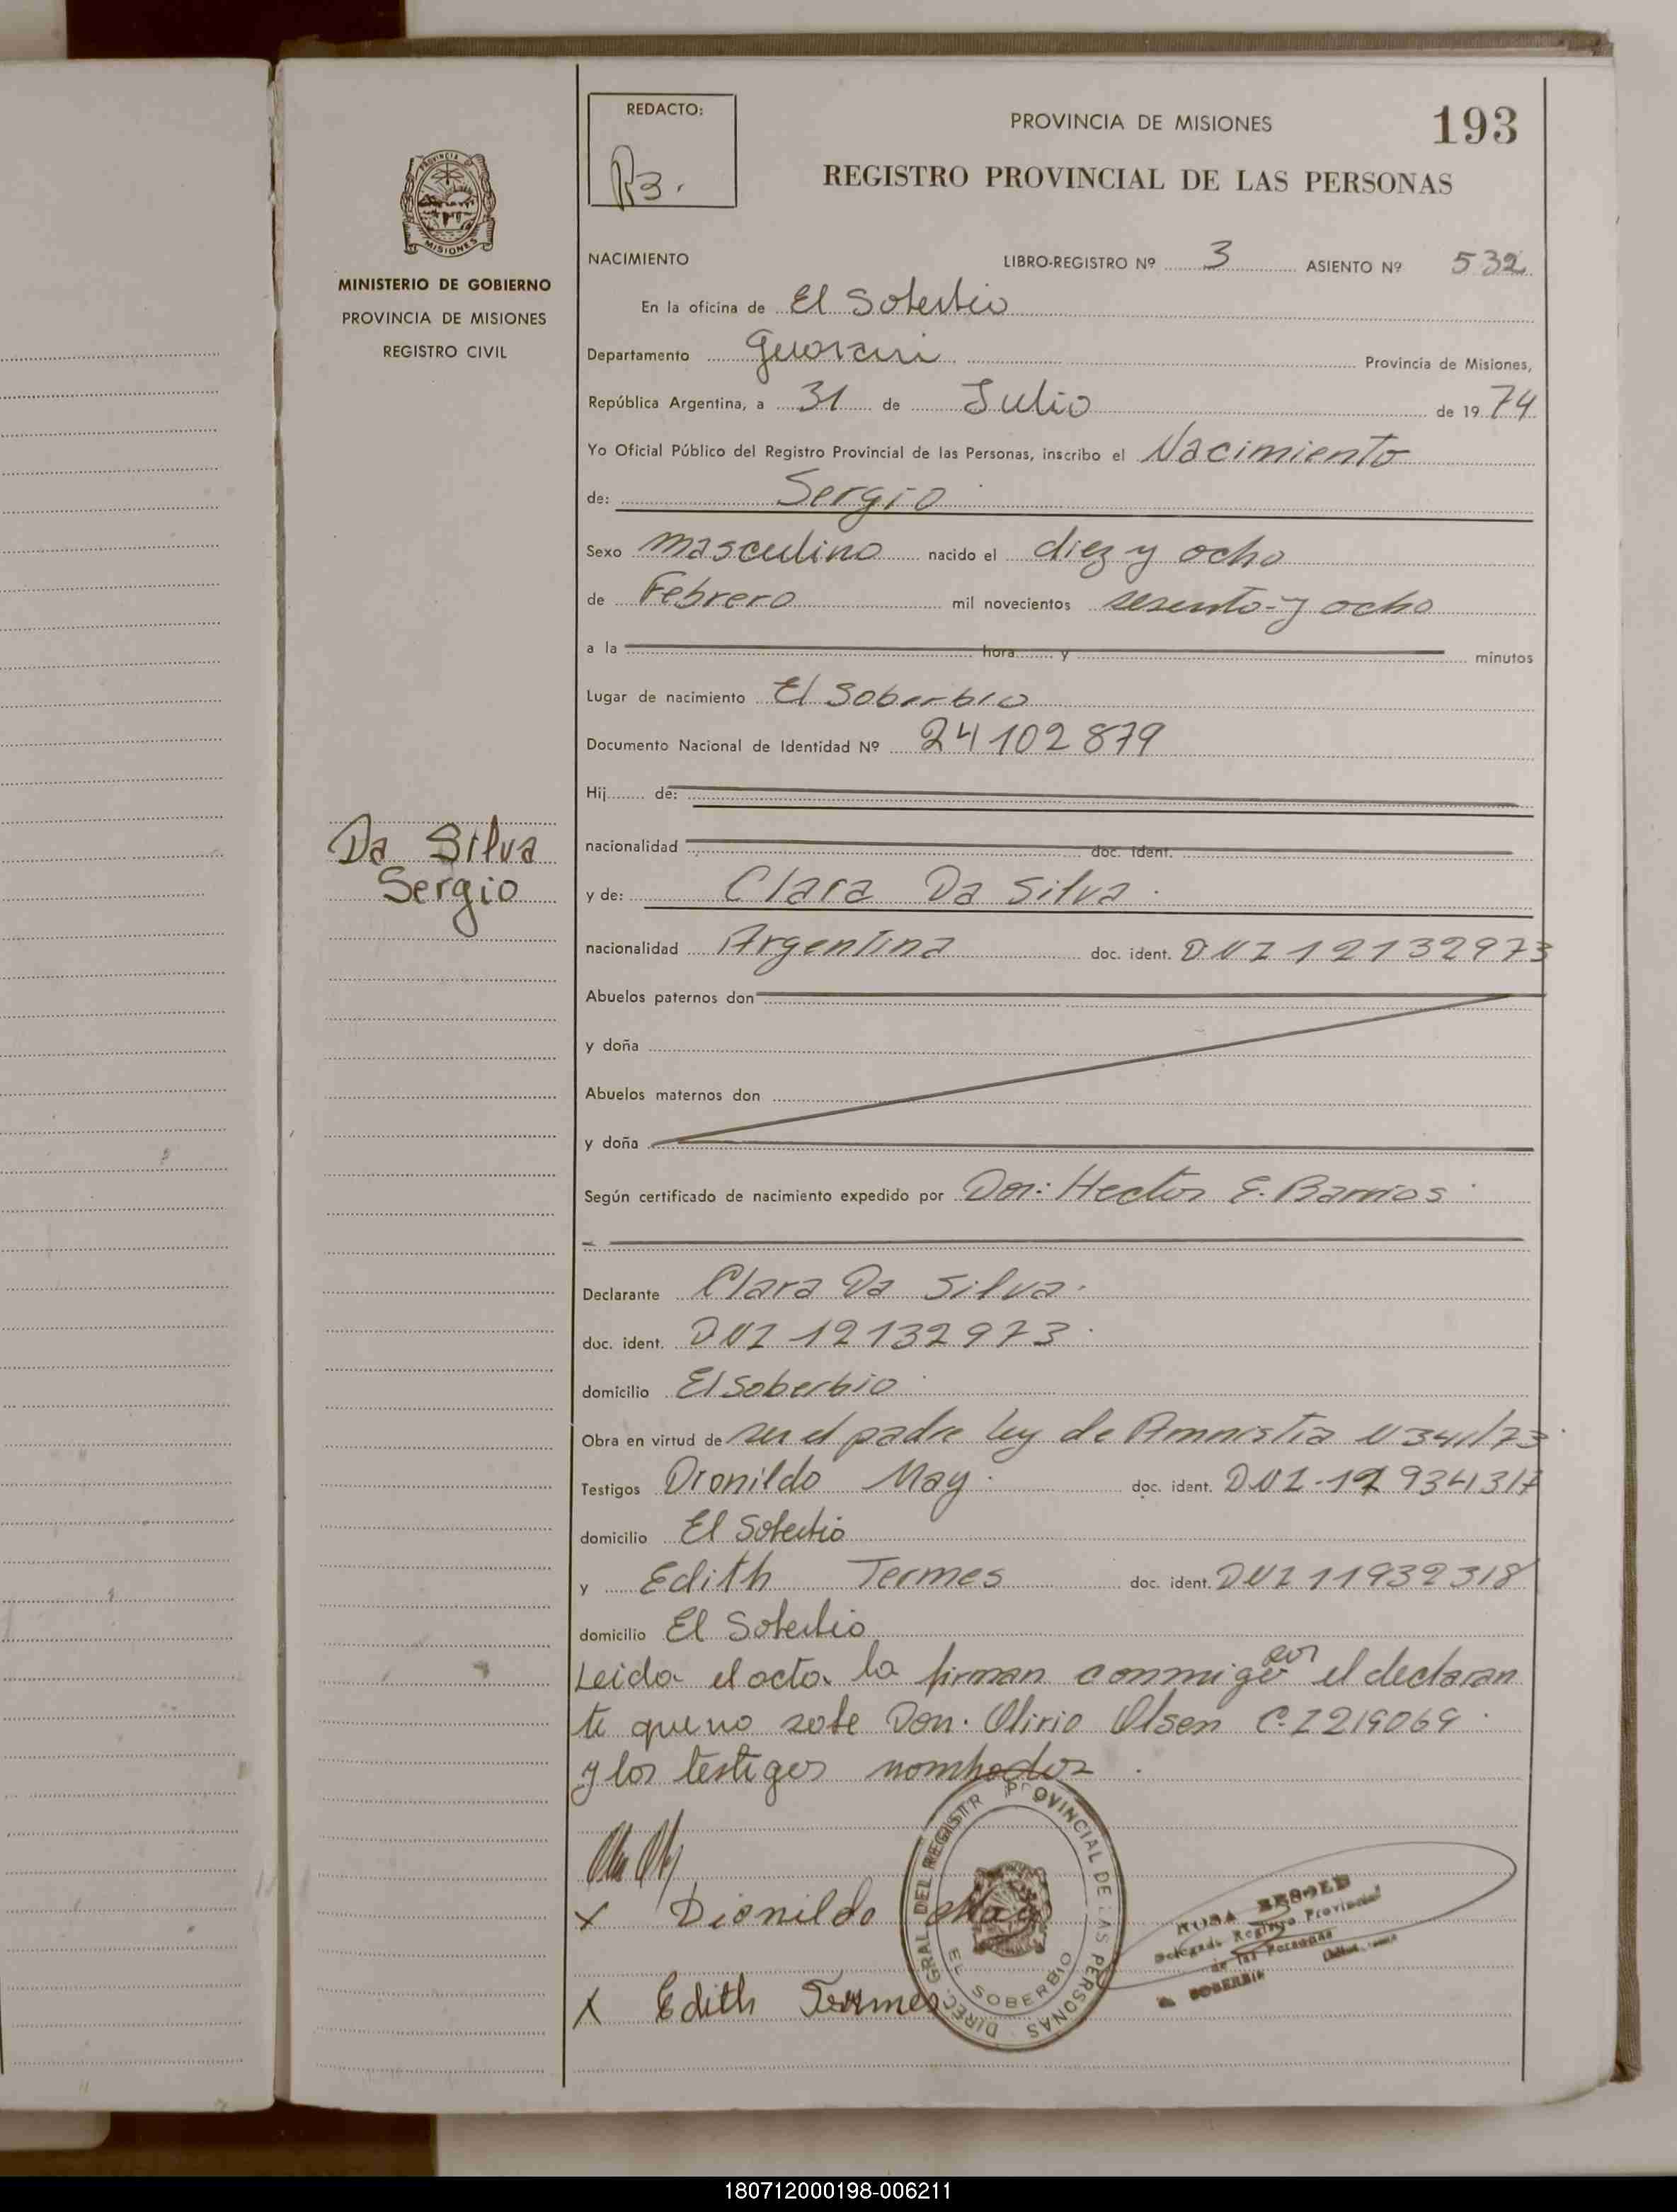 REDACTO:
R3.
PROVINCIA DE MISIONES
193
REGISTRO PROVINCIAL DE LAS PERSONAS
PROVINCIA DE
MISIONES
MINISTERIO DE GOBIERNO
PROVINCIA DE MISIONES
REGISTRO CIVIL
NACIMIENTO LIBRO-REGISTRO Nº 3 ASIENTO Nº 532
En la oficina de El Soberbio
Departamento Guarani Provincia de Misiones,
República Argentina, a 31 de Julio de 1974
Yo Oficial Público del Registro Provincial de las Personas, inscribo el Nacimiento
de: Sergio
Sexo masculino nacido el diez y ocho
de Febrero mil novecientos sesenta y ocho
a la hora y minutos
Lugar de nacimiento El Soberbio
Documento Nacional de Identidad Nº 24102879
Hij de:
nacionalidad doc. ident.
Da Silva
Sergio
y de: Clara Da Silva.
nacionalidad Argentina doc. ident. DNI 12132973
Abuelos paternos don
y doña
Abuelos maternos don
y doña
Según certificado de nacimiento expedido por Don: Hector E. Barrios
Declarante Clara Da Silva.
doc. ident. DNI 12132973.
domicilio El Soberbio
Obra en virtud de ser el padre ley de Amnistia N 341/73
Testigos Dionildo May. doc. ident. DNI
domicilio El Soberbio
y Edith Termes doc. ident. DNI 11932318
domicilio El Soberbio
Leida el acta la firman conmigo por el declaran
te que no sabe Don. Olirio Olsen C.I 219069.
y los testigos nombrados.
x Dionildo May
x Edith Termes
DIREC. GRAL DEL REGISTR PROVINCIAL DE LAS PERSONAS
EL SOBERBIO
ROSA
Delegada Registro Provincial
de las Personas
SOBERBIO
180712000198-006211